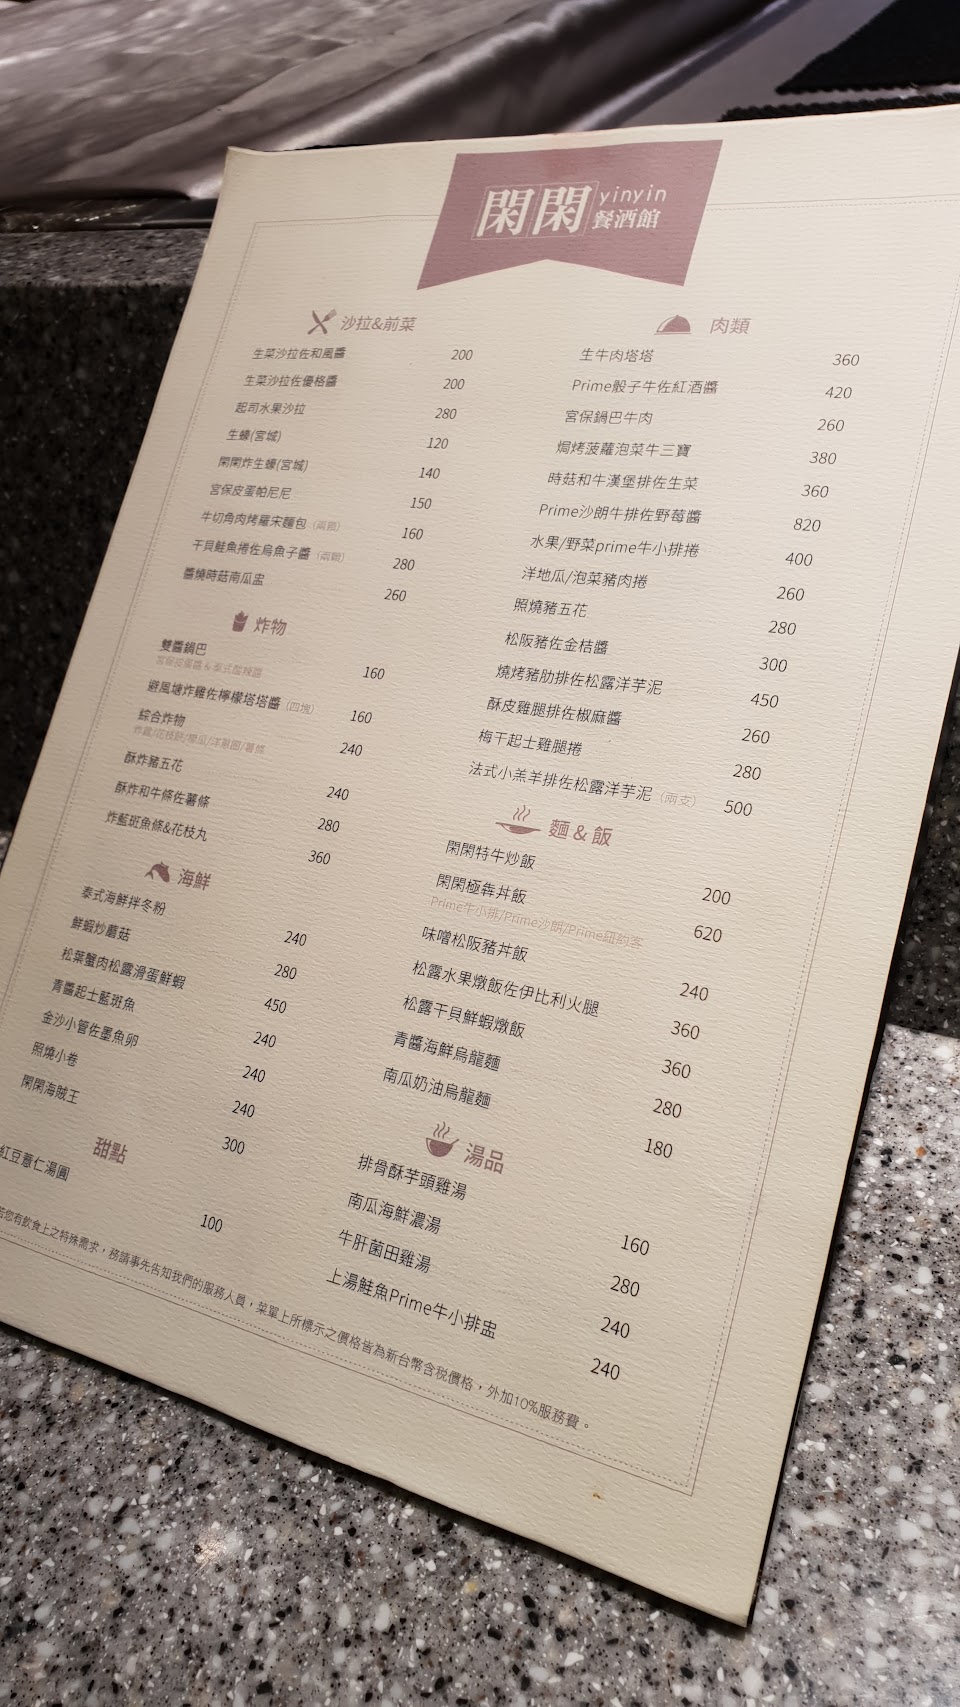 閑閑 yinyin 餐酒館
沙拉&前菜
生菜沙拉佐和風醬 200
生菜沙拉佐優格醬 200
起司水果沙拉 280
生蠔(宮城) 120
閑閑炸生蠔(宮城) 140
宮保皮蛋帕尼尼 150
牛切角肉烤羅宋麵包（兩顆） 160
干貝鮭魚捲佐烏魚子醬（兩顆） 280
醬燒時菇南瓜盅 260
炸物
雙醬鍋巴 160
宮保皮蛋醬&泰式酸辣醬
避風塘炸雞佐檸檬塔塔醬（四塊） 160
綜合炸物 240
炸雞/花枝餅/南瓜/洋蔥圈/薯條
酥炸豬五花 240
酥炸和牛條佐薯條 280
炸藍斑魚條&花枝丸 360
海鮮
泰式海鮮拌冬粉 240
鮮蝦炒蘑菇 280
松葉蟹肉松露滑蛋鮮蝦 450
青醬起士藍斑魚 240
金沙小管佐墨魚卵 240
照燒小卷 240
閑閑海賊王 300
甜點
紅豆薏仁湯圓 100
肉類
生牛肉塔塔 360
Prime骰子牛佐紅酒醬 420
宮保鍋巴牛肉 260
焗烤菠蘿泡菜牛三寶 380
時菇和牛漢堡排佐生菜 360
Prime沙朗牛排佐野莓醬 820
水果/野菜prime牛小排捲 400
洋地瓜/泡菜豬肉捲 260
照燒豬五花 280
松阪豬佐金桔醬 300
燒烤豬肋排佐松露洋芋泥 450
酥皮雞腿排佐椒麻醬 260
梅干起士雞腿捲 280
法式小羔羊排佐松露洋芋泥（兩支） 500
麵&飯
閑閑特牛炒飯 200
閑閑極犇丼飯 620
Prime牛小排/Prime沙朗/Prime紐約客
味噌松阪豬丼飯 240
松露水果燉飯佐伊比利火腿 360
松露干貝鮮蝦燉飯 360
青醬海鮮烏龍麵 280
南瓜奶油烏龍麵 180
湯品
排骨酥芋頭雞湯 160
南瓜海鮮濃湯 280
牛肝菌田雞湯 240
上湯鮭魚Prime牛小排盅 240
若您有飲食上之特殊需求，務請事先告知我們的服務人員，菜單上所標示之價格皆為新台幣含稅價格，外加10%服務費。